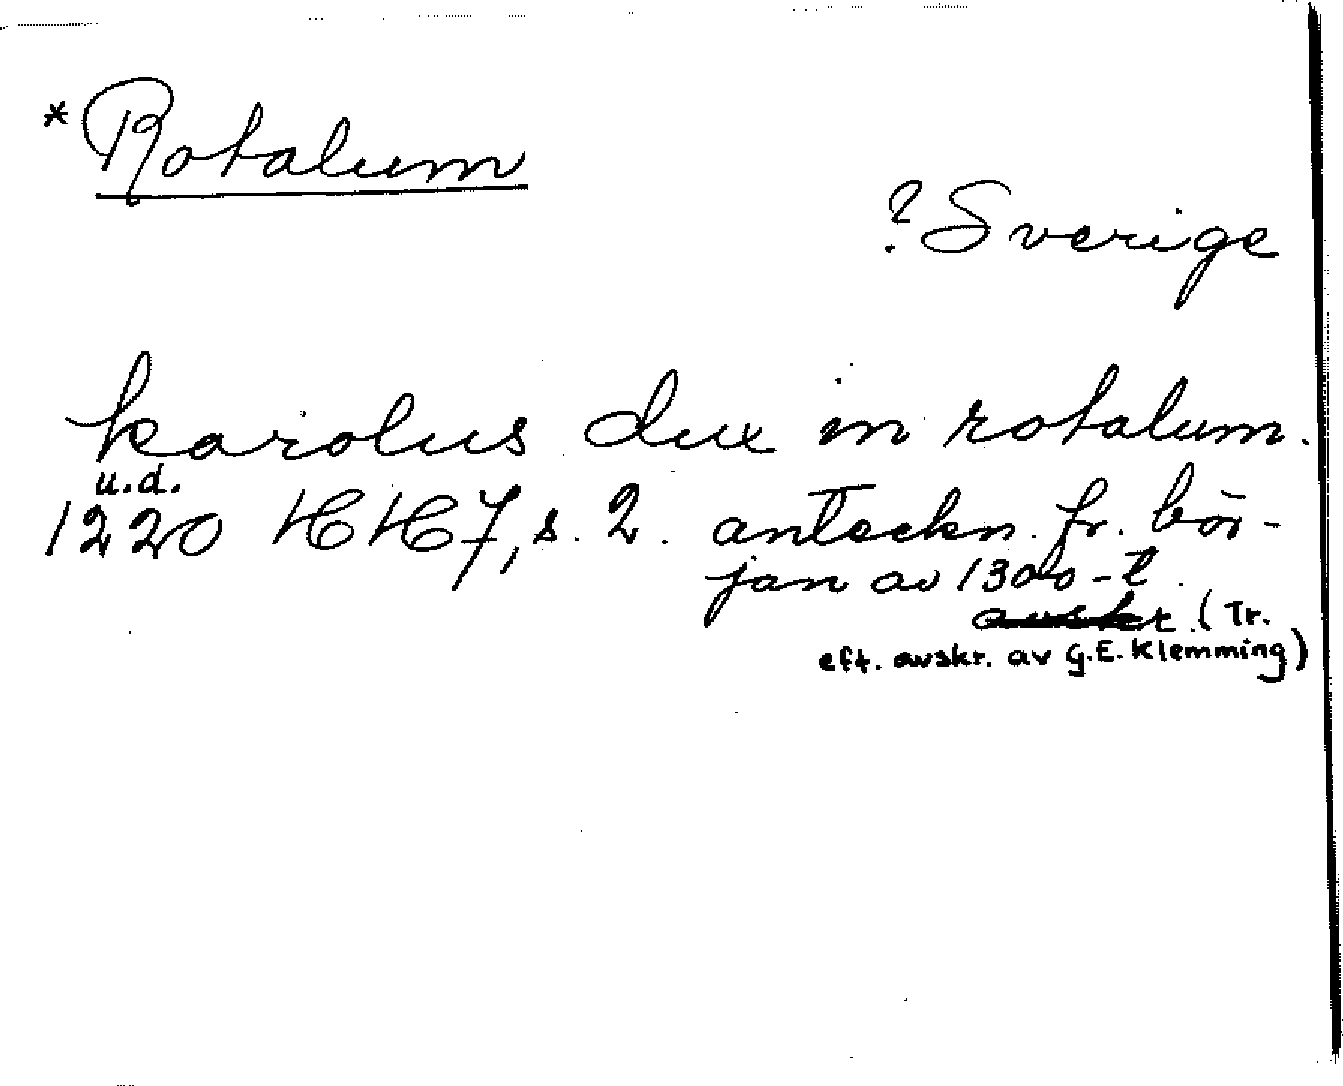 * Rotalum
? Sverige
karolus dux in rotalum.
u.d.
1220 HH 7, s. 2. anteckn. fr. bör-
jan av 1300-t.
avskr. (Tr.
eft. avskr. av G.E. Klemming)